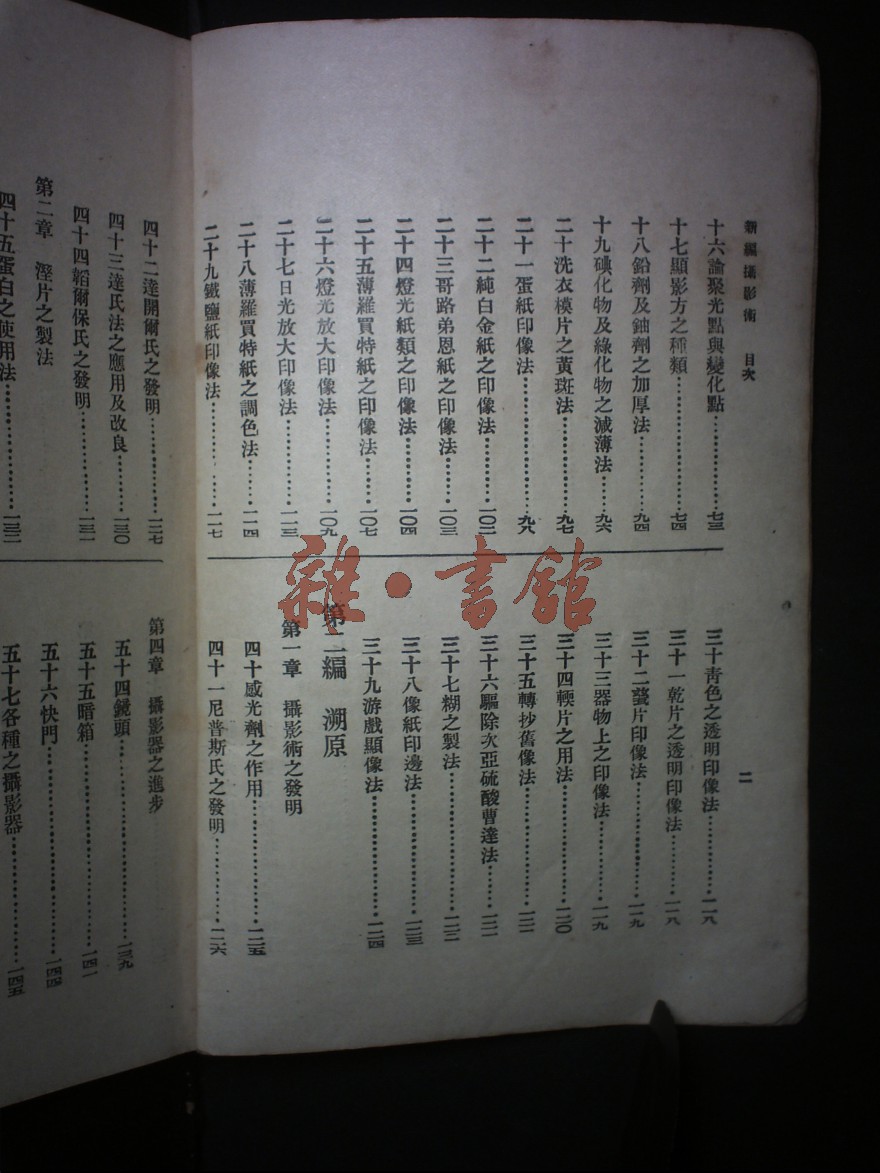 新編攝影術　目次
二
十六論聚光點與變化點……七三
十七顯影方之種類……七四
十八鉛劑及鈾劑之加厚法……九四
十九碘化物及綠化物之減薄法……九六
二十洗衣模片之黃斑法……九七
二十一蛋紙印像法……九八
二十二純白金紙之印像法……一〇二
二十三哥路弟恩紙之印像法……一〇三
二十四燈光紙類之印像法……一〇四
二十五薄羅買特紙之印像法……一〇七
二十六燈光放大印像法……一〇九
二十七日光放大印像法……一一三
二十八薄羅買特紙之調色法……一一四
二十九鐵鹽紙印像法……一一七
三十靑色之透明印像法……一一八
三十一乾片之透明印像法……一一八
三十二瓷片印像法……一一九
三十三器物上之印像法……一一九
三十四輭片之用法……一二〇
三十五轉抄舊像法……一二一
三十六驅除次亞硫酸曹達法……一二一
三十七糊之製法……一二二
三十八像紙印邊法……一二三
三十九游戲顯像法……一二四
第二編　溯原
第一章　攝影術之發明
四十感光劑之作用……一二五
四十一尼普斯氏之發明……一二六
四十二達開爾氏之發明……一二七
四十三達氏法之應用及改良……一三〇
四十四韜爾保氏之發明……一三一
第二章　溼片之製法
四十五蛋白之使用法……一三二
第四章　攝影器之進步
五十四鏡頭……一三九
五十五暗箱……一四一
五十六快門……一四四
五十七各種之攝影器……一四五
雜·書館